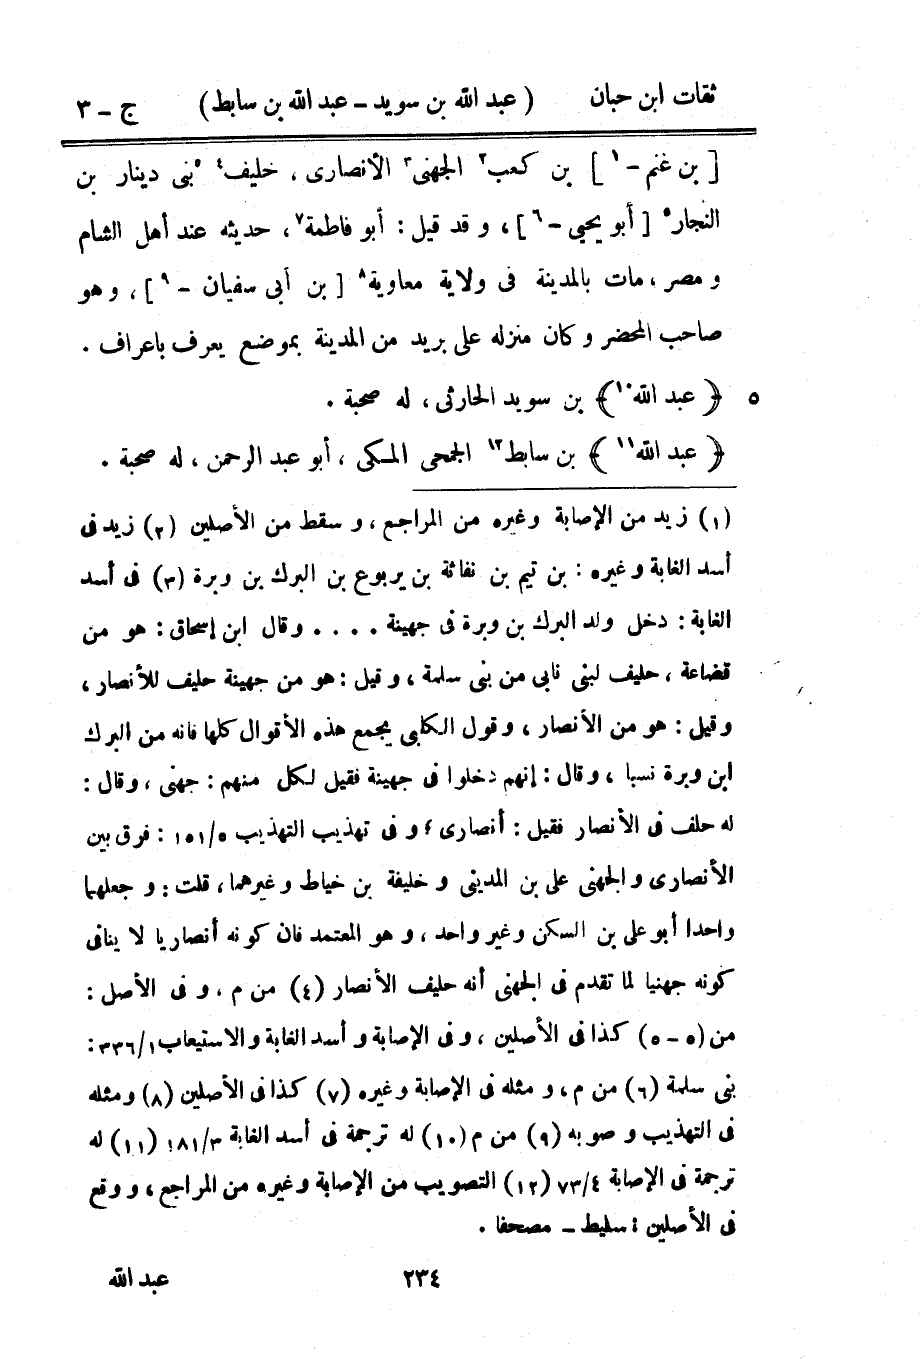 ثقات ابن حبان ( عبد الله بن سويد ــ عبد الله بن سابط ) ج ــ ٣
[ بن غنم - ١ ] بن كعب٢ الجهنى٣ الأنصارى ، خليف٤ ٥بنى دينار بن
النجار٥ [ أبو يحيى - ٦ ] ، و قد قيل : أبو فاطمة٧ ، حديثه عند أهل الشام
و مصر ، مات بالمدينة فى ولاية معاوية٨ [ بن أبى سفيان - ٩ ] ، و هو
صاحب المحضر و كان منزله على بريد من المدينة بموضع يعرف باعراف .
٥ ﴿ عبد الله١٠ ﴾ بن سويد الحارثى ، له صحبة .
﴿ عبد الله١١ ﴾ بن سابط١٢ الجمحى المكى ، أبو عبد الرحمن ، له صحبة .
(١) زيد من الإصابة وغيره من المراجع ، و سقط من الأصلين (٢) زيد فى
أسد الغابة و غيره : بن تيم بن نفاثة بن يربوع بن البرك بن وبرة (٣) فى أسد
الغابة : دخل ولد البرك بن وبرة فى جهينة . . . . وقال ابن إسحاق : هو من
قضاعة ، حليف لبنى نابى من بنى سلمة ، و قيل : هو من جهينة حليف للأنصار ،
و قيل : هو من الأنصار ، و قول الكلبى يجمع هذه الأقوال كلها فانه من البرك
ابن وبرة نسبا ، و قال : إنهم دخلوا فى جهينة فقيل لكل منهم : جهنى ، و قال :
له حلف فى الأنصار فقيل : أنصارى ؛ و فى تهذيب التهذيب ١٥١/٥ : فرق بين
الأنصارى و الجهنى على بن المدينى و خليفة بن خياط و غيرهما ، قلت : و جعلهما
واحدا أبو على بن السكن وغير واحد ، و هو المعتمد فان كونه أنصاريا لا ينافى
كونه جهنيا لما تقدم فى الجهنى أنه حليف الأنصار (٤) من م ، و فى الأصل :
من (٥ - ٥) كذا فى الأصلين ، و فى الإصابة و أسد الغابة و الاستيعاب ٣٣٦/١ :
بنى سلمة (٦) من م ، و مثله فى الإصابة و غيره (٧) كذا فى الأصلين (٨) و مثله
فى التهذيب و صوبه (٩) من م (١٠) له ترجمة فى أسد الغابة ١٨١/٣ (١١) له
ترجمة فى الإصابة ٧٣/٤ (١٢) التصويب من الإصابة و غيره من المراجع ، و وقع
فى الأصلين : سليط ــ مصحفا .
٢٣٤ عبد الله